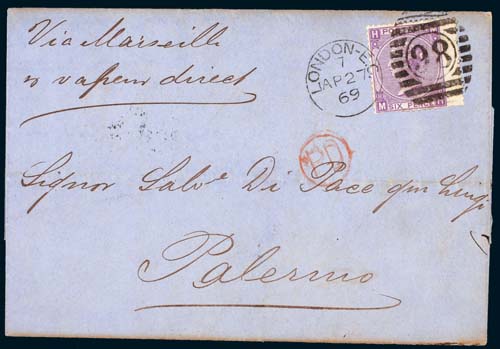 Via Marseille
vapeur direct
LONDON-E
7
AP 27
69
98
H
SIX PENCE
M H
PD
Signor Salve. Di Pace qm Luigi
Palermo